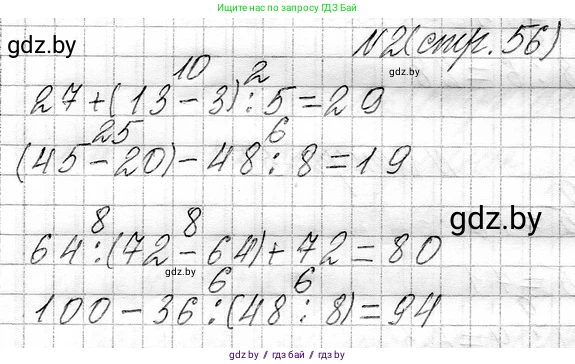 Ищите нас по запросу ГДЗ Бай
gdz.by
№2(стр. 56)
gdz.by
10 2
27+(13-3):5=29
25 6
(45-20)-48:8=19
8 8
gdz.by
64:(72-64)+72=80
gdz.by
6 6
100-36:(48:8)=94
gdz.by / гдз бай / гдз.бел